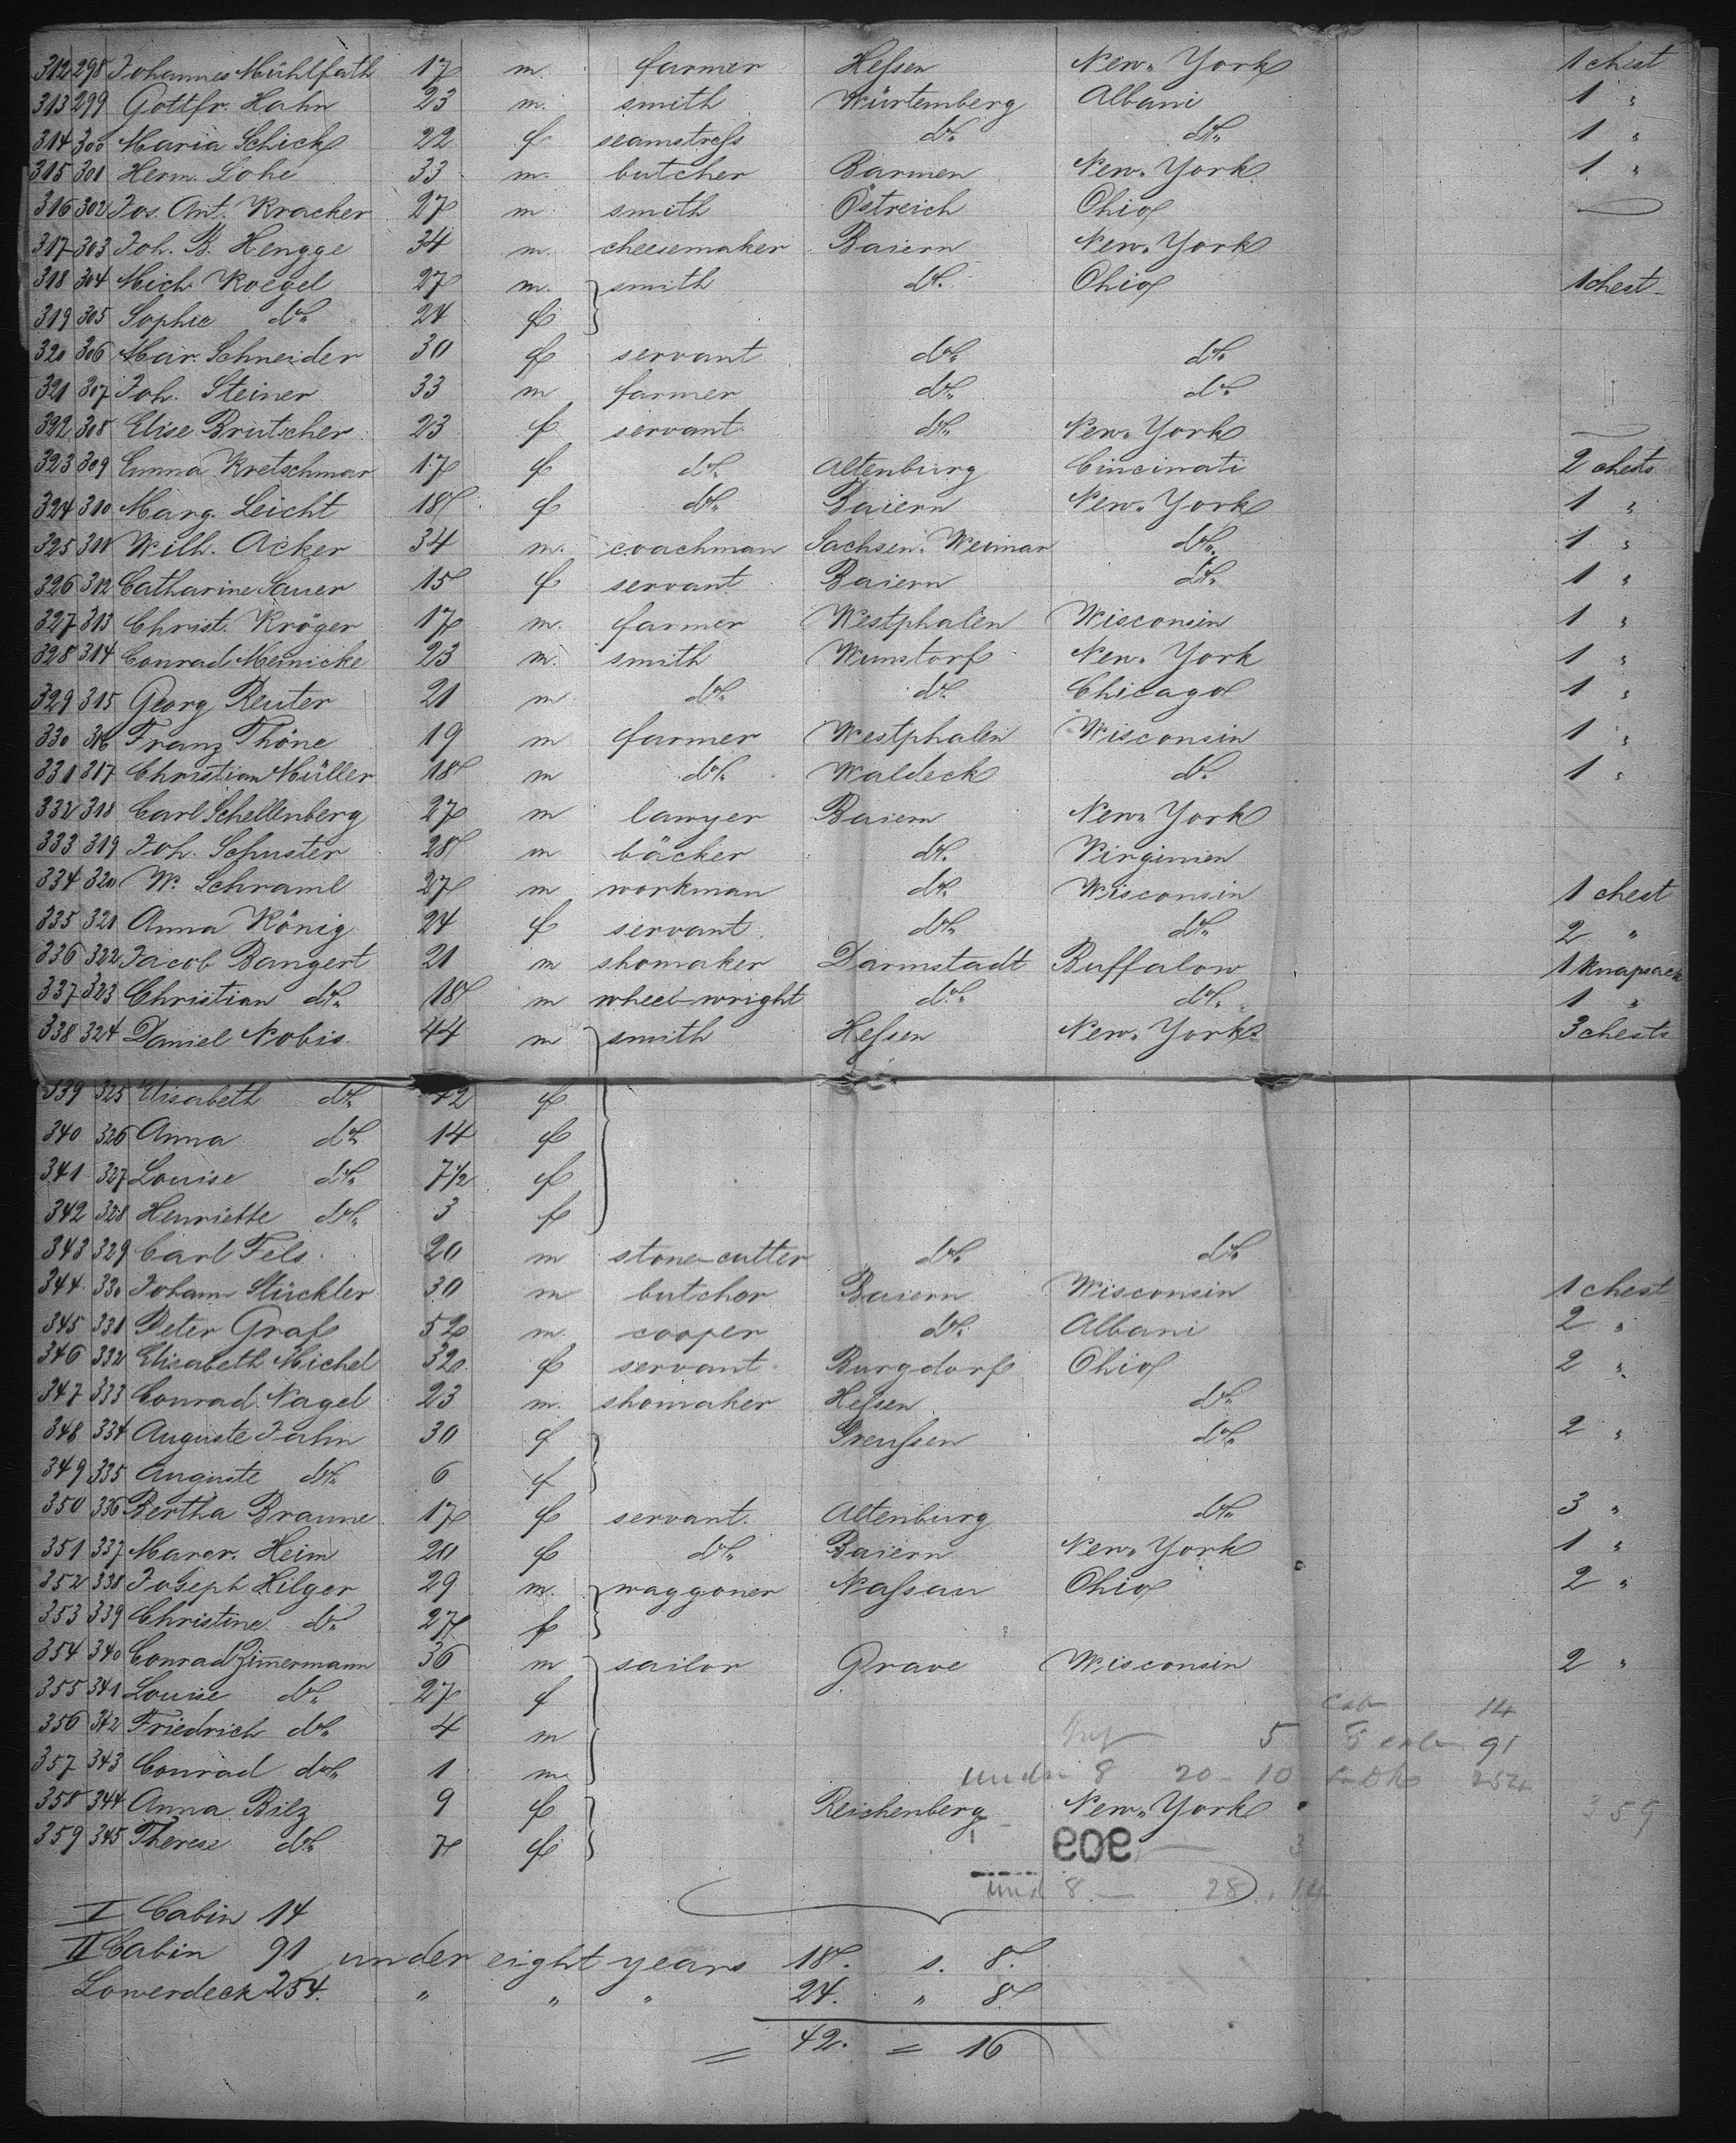 312 298 Johannes Mühlfath 17 m. farmer Heſsen New-York 1 chest
313 299 Gottfr. Hahn 23 m. smith Würtemberg Albani 1 "
314 300 Maria Schick 22 f seamstreſs do. do. 1 "
315 301 Herm. Lohe 33 m. butcher Barmen New-York 1 "
316 302 Jos. Ant. Kracker 27 m smith Östreich Ohio —
317 303 Joh. B. Hengge 34 m. cheesemaker Baiern New-York
318 304 Mich. Koegel 27 m. smith do. Ohio 1 chest
319 305 Sophie do. 24 f
320 306 Mar. Schneider 30 f servant do. do.
321 307 Joh. Steiner 33 m farmer do. do.
322 308 Elise Brutscher 23 f servant do. New-York —
323 309 Emma Kretschmar 17 f do. Altenburg Cincinati 2 chests
324 310 Marg. Leicht 18 f do. Baiern New-York 1 "
325 311 Wilh. Acker 34 m. coachman Sachsen-Weimar do. 1 "
326 312 Catharine Sauer 15 f servant Baiern do. 1 "
327 313 Christ. Kröger 17 m. farmer Westphalen Wisconsin 1 "
328 314 Conrad Meinicke 23 m. smith Wunstorf New-York 1 "
329 315 Georg Reuter 21 m do. do. Chicago 1 "
330 316 Franz Thöne 19 m farmer Westphalen Wisconsin 1 "
331 317 Christian Müller 18 m do. Waldeck do. 1 "
332 318 Carl Schellenberg 27 m lawyer Baiern New-York
333 319 Joh. Schuster 28 m bäcker do. Virginien
334 320 W. Schraml 27 m workman do. Wisconsin 1 chest
335 321 Anna König 24 f servant do. do. 2 "
336 322 Jacob Bangert 21 m shomaker Darmstadt Buffalow 1 knapsack
337 323 Christian do. 18 m wheel-wright do. do. 1 "
338 324 Daniel Nobis 44 m smith Heſsen New-York 3 chests
339 325 Elisabeth do. 42 f
340 326 Anna do. 14 f
341 327 Louise do. 7½ f
342 328 Henriette do. 3 f
343 329 Carl Fels 20 m stone-cutter do. do.
344 330 Johann Stückler 30 m butcher Baiern Wisconsin 1 chest
345 331 Peter Graf 52 m. cooper do. Albani 2 "
346 332 Elisabeth Michel 32 f servant Burgdorf Ohio 2 "
347 333 Conrad Nagel 23 m. shomaker Heſsen do.
348 334 Auguste Jahn 30 f Preuſsen do. 2 "
349 335 Auguste do. 6 f
350 336 Bertha Braune 17 f servant Altenburg do. 3 "
351 337 Margr. Heim 20 f do. Baiern New-York 1 "
352 338 Joseph Hilger 29 m. waggoner Naſsau Ohio 2 "
353 339 Christine do. 27 f
354 340 Conrad Zimmermann 36 m sailor Grave Wisconsin 2 "
355 341 Louise do. 27 f
cab 14
356 342 Friedrich do. 4 m
5 cab 91
357 343 Conrad do. 1 m.
under 8 20 - 10 254
358 344 Anna Bilz 9 f Reichenberg New-York
359
359 345 Therese do. 7 f
909 3
und 8 — 28 . 14
I Cabin 14
II Cabin 91 under eight years 18. s. 8.
Lowerdeck 254. " " " 24. " 8
= 42. = 16